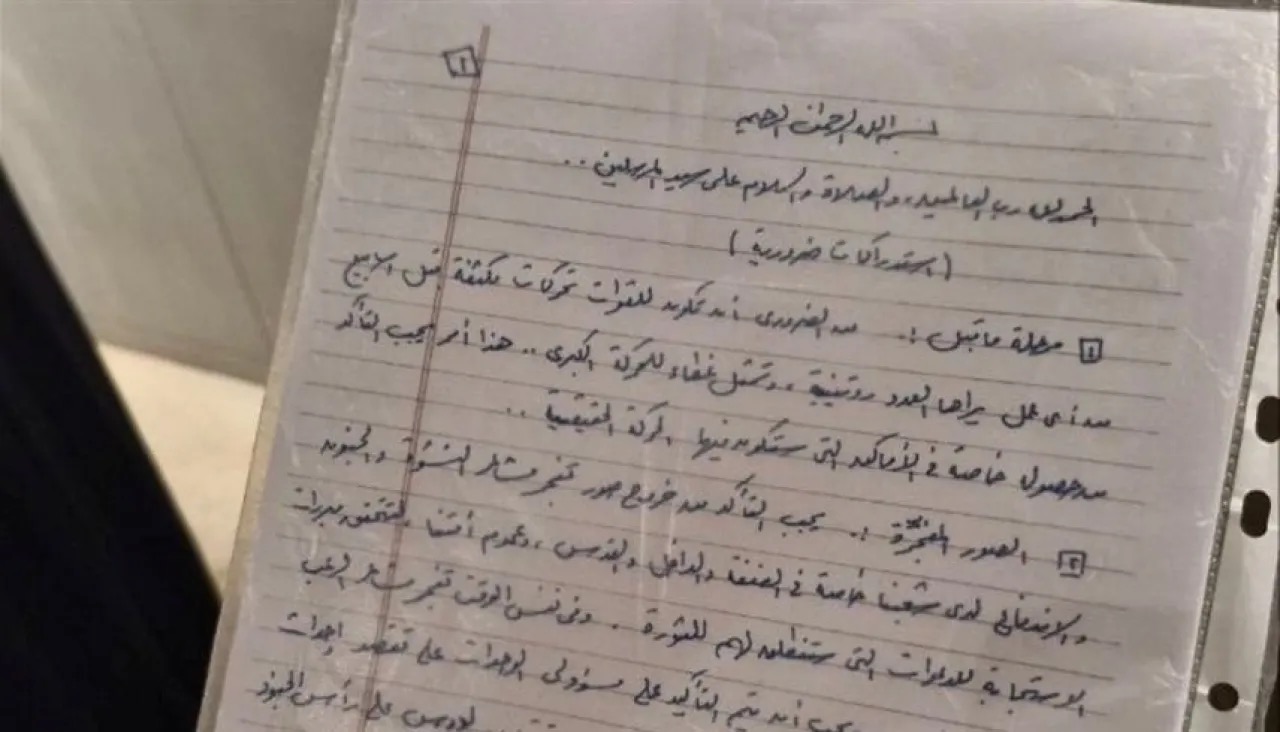 ١
بسم الله الرحمن الرحيم
الحمد لله رب العالمين، والصلاة والسلام على سيد المرسلين ..
(استدراكات ضرورية)
١ مرحلة ما قبل :. من الضروري أن تكون للقوات تحركات مكثفة قبل أسابيع
من أي عمل يراها العدو روتينية، وتمثل غطاء للحركة الكبرى .. هذا أمر يجب التأكد
من حصوله خاصة في الأماكن التي ستكون فيها الحركة الحقيقية ..
٢ الصور المفجّرة :. يجب التأكد من خروج صور تفجر مشاعر النشوة والجنون
والاندفاع لدى شعبنا خاصة في الضفة والداخل والقدس، وعموم أمتنا لتتحقق مبررات
الاستجابة للدعوات التي ستنطلق لهم للثورة . وفي نفس الوقت تفجر مشاعر الرعب
يجب أن يتم التأكيد على مسؤولي الوحدات على تقصد إحداث
على رأس الجنود